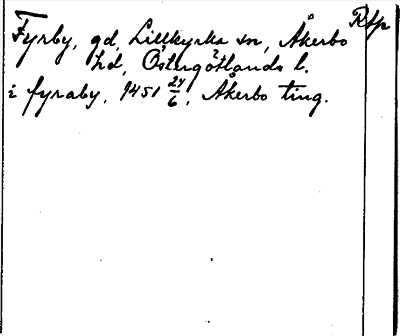 Fyrby, gd, Lillkyrka sn, Åkerbo
hd, Östergötlands l.
i fyraby, 1451 24/6, Åkerbo ting.